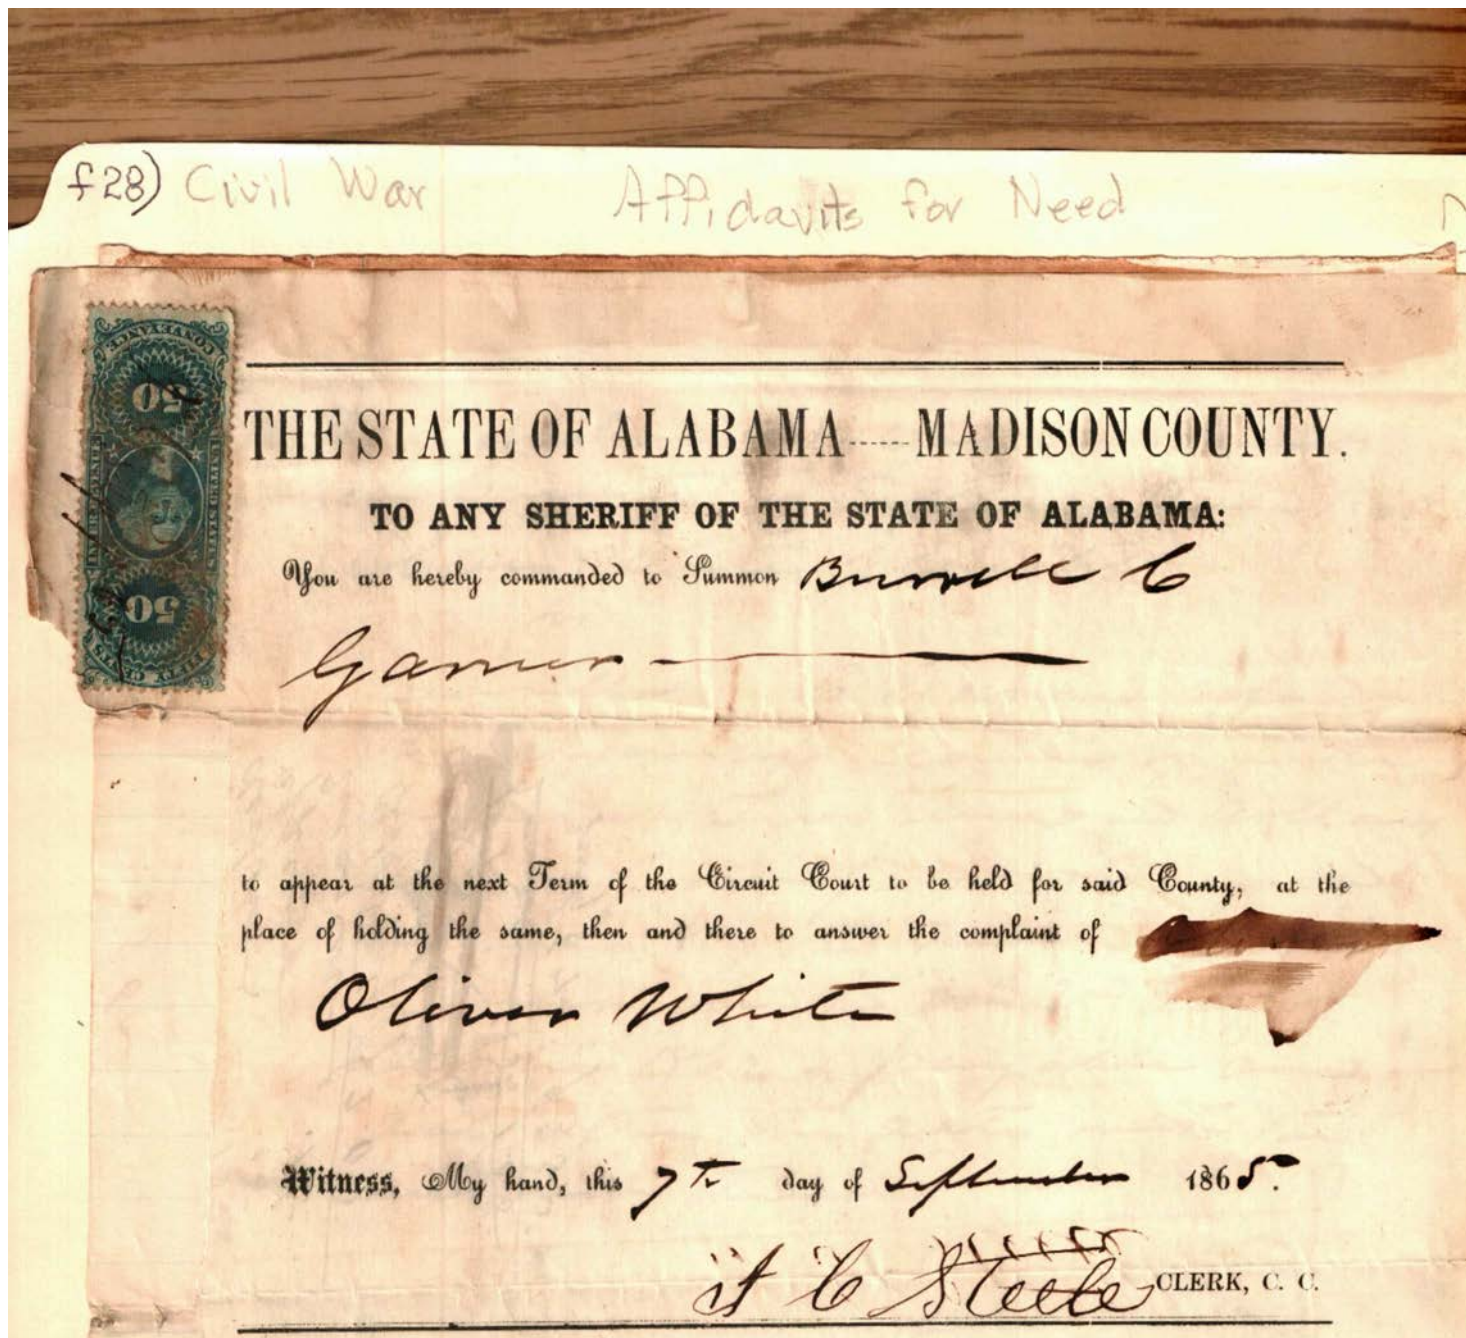 f28) Civil War Affidavits for Need
CONVEYANCE
50
INTER. REVENUE
UNITED STATES
50
FIFTY CENTS
THE STATE OF ALABAMA-----MADISON COUNTY.
TO ANY SHERIFF OF THE STATE OF ALABAMA:
You are hereby commanded to Summon Burrell C
Garner
to appear at the next Term of the Circuit Court to be held for said County, at the
place of holding the same, then and there to answer the complaint of
Oliver White
Witness, My hand, this 7th day of September 1865.
C Steele CLERK, C. C.